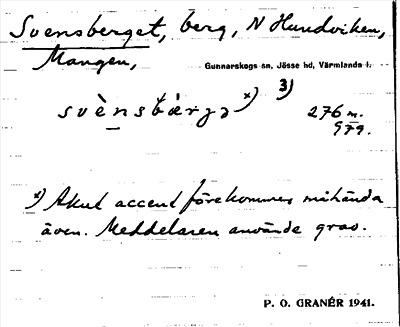 Svensberget, berg, N Hundviken,
Mangen,
Gunnarskogs sn, Jösse hd, Värmlands l.
svènsbærgə x) 3)
276 m.
979.
x) Akut accent förekommer måhända
även. Meddelaren använde grav.
P. O. GRANÉR 1941.